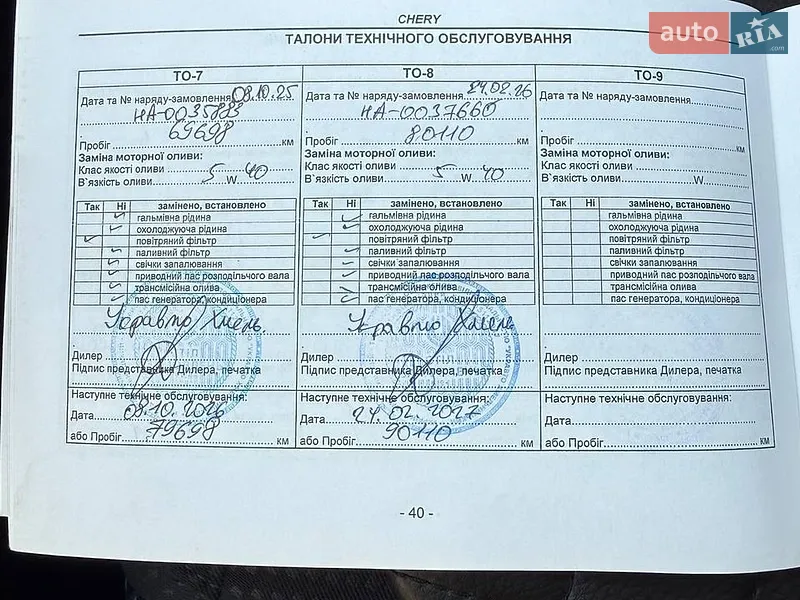 CHERY
auto RIA .com
ТАЛОНИ ТЕХНІЧНОГО ОБСЛУГОВУВАННЯ
ТО-7
Дата та № наряду-замовлення 08.10.25
НА-0035883
69698
Пробіг км
Заміна моторної оливи:
Клас якості оливи
В`язкість оливи 5 W 40
Так Ні замінено, встановлено
гальмівна рідина
охолоджуюча рідина
повітряний фільтр
паливний фільтр
свічки запалювання
приводний пас розподільчого вала
трансмісійна олива
пас генератора, кондиціонера
Укравто Хмель.
Дилер
Підпис представника Дилера, печатка
Наступне технічне обслуговування:
Дата 08.10.2026
або Пробіг 79698 км
ТО-8
Дата та № наряду-замовлення 24.02.26
НА-0037660
80110
Пробіг км
Заміна моторної оливи:
Клас якості оливи
В`язкість оливи 5 W 40
Так Ні замінено, встановлено
гальмівна рідина
охолоджуюча рідина
повітряний фільтр
паливний фільтр
свічки запалювання
приводний пас розподільчого вала
трансмісійна олива
пас генератора, кондиціонера
Укравто Хмель
Дилер
Підпис представника Дилера, печатка
Наступне технічне обслуговування:
Дата 24.02.2027
або Пробіг 90110 км
ТО-9
Дата та № наряду-замовлення
Пробіг км
Заміна моторної оливи:
Клас якості оливи
В`язкість оливи W
Так Ні замінено, встановлено
гальмівна рідина
охолоджуюча рідина
повітряний фільтр
паливний фільтр
свічки запалювання
приводний пас розподільчого вала
трансмісійна олива
пас генератора, кондиціонера
Дилер
Підпис представника Дилера, печатка
Наступне технічне обслуговування:
Дата
або Пробіг км
- 40 -